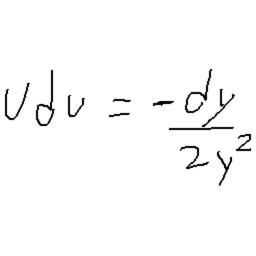 v dv = -dy / 2y²